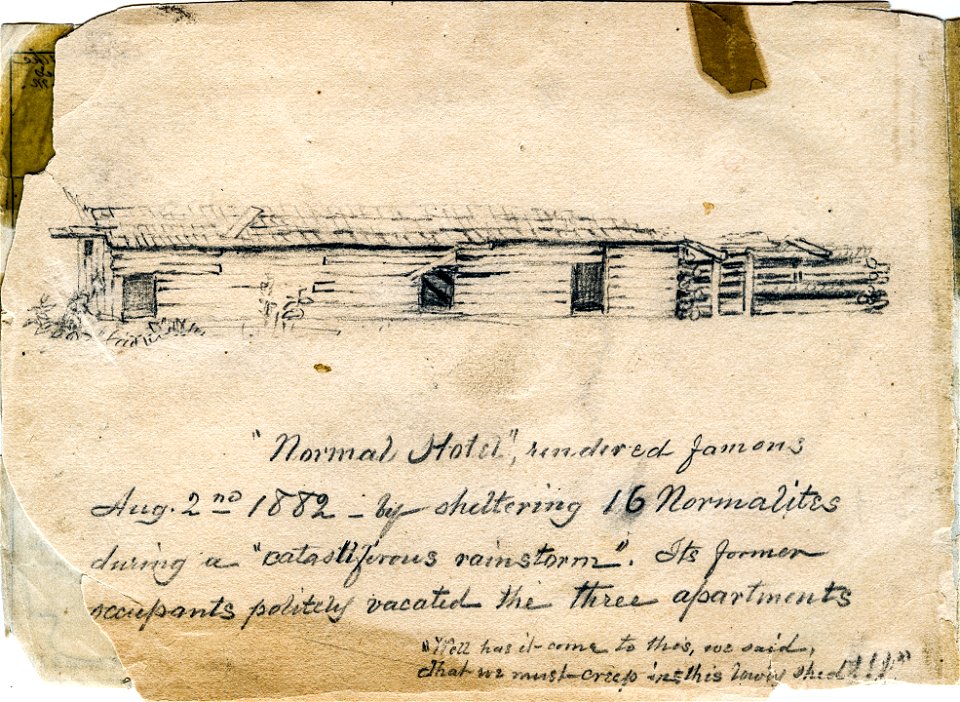 "Normal Hotel", rendered famous
Aug. 2nd 1882 - by sheltering 16 Normalites
during a "catastiferous rainstorm". Its former
occupants politely vacated the three apartments
"Well has it come to this, we said,
That we must creep in this lowly shed!!!"